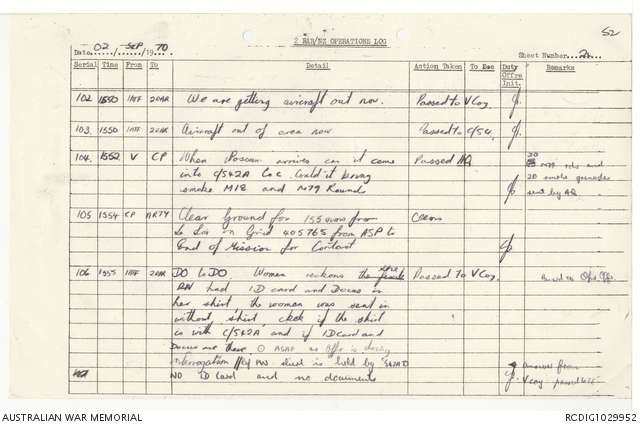 52
2 RAR/NZ OPERATIONS LOG
Date 02 SEP 1970 Sheet Number 2
Serial Time From To Detail Action Taken To Dec Duty Offrs Init. Remarks
102 1550 1ATF 2RAR We are getting aircraft out now. Passed to V Coy.
103 1550 1ATF 2RAR Aircraft out of area now Passed to C/S4
104 1552 V CP When Possum arrives can it come Passed IQ 30 M79 rds and
into C/S42A Loc. Could it bring 20 smoke grenades
smoke M18 and M79 Rounds sent by AQ
105 1554 CP ARTY Clear Ground for 155 guns from
Grid 405765 from ASP to
End of Mission for Contact
106 1555 1ATF 2RAR DO to DO Women reckons the Passed to V Coy.
PW had ID card and Docus in
her shirt the woman was sent in
without shirt check if the shirt
is with C/S42A and if ID card and
Docus are there ASAP as Offr is doing
interrogation PW shirt is held by
NO ID card and no documents Answer from
V Coy passed
AUSTRALIAN WAR MEMORIAL RCDIG1029952